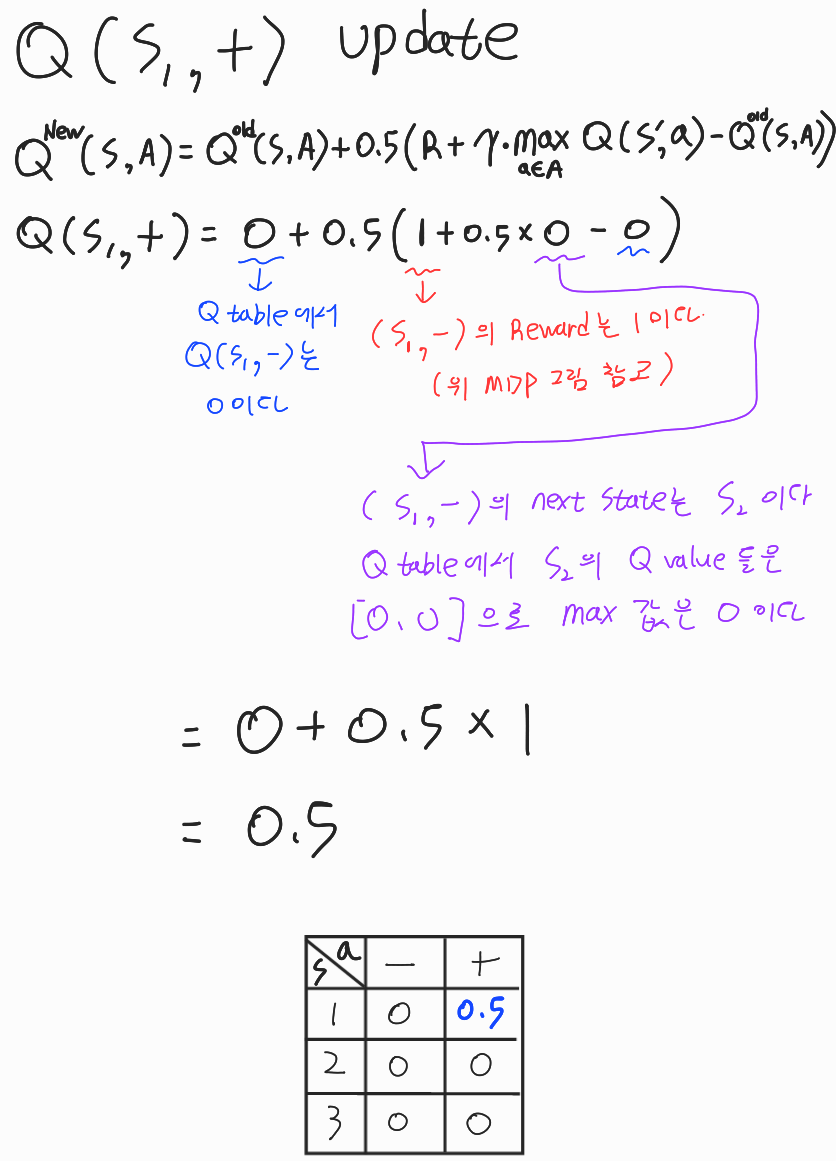 Q(S₁,+) update
Q^New(S,A) = Q^old(S,A) + 0.5(R + γ·max_{a∈A} Q(S′,a) − Q^old(S,A))
Q(S₁,+) = 0 + 0.5(1 + 0.5 × 0 − 0)
Q table에서
Q(S₁,−)는
0이다
(S₁,−)의 Reward는 1이다.
(위 MDP 그림 참고)
(S₁,−)의 next state는 S₂ 이다
Q table에서 S₂의 Q value 들은
[0,0]으로 max 값은 0이다
= 0 + 0.5 × 1
= 0.5
s a − +
1 0 0.5
2 0 0
3 0 0